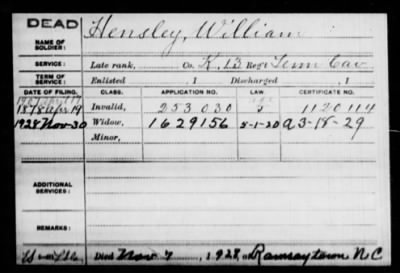 DEAD
NAME OF SOLDIER: Hensley, William
SERVICE: Late rank, Co. K, 13 Reg't Tenn Cav
TERM OF SERVICE: Enlisted , 1 Discharged , 1
DATE OF FILING. CLASS. APPLICATION NO. LAW. CERTIFICATE NO.
1878 Apr 14 Invalid, 253030 1120114
1928 Nov-30 Widow, 1629156 5-1-20 A 3-18-29
Minor,
ADDITIONAL SERVICES:
REMARKS:
Died Nov 7, 1928, at Ramsaytown N C